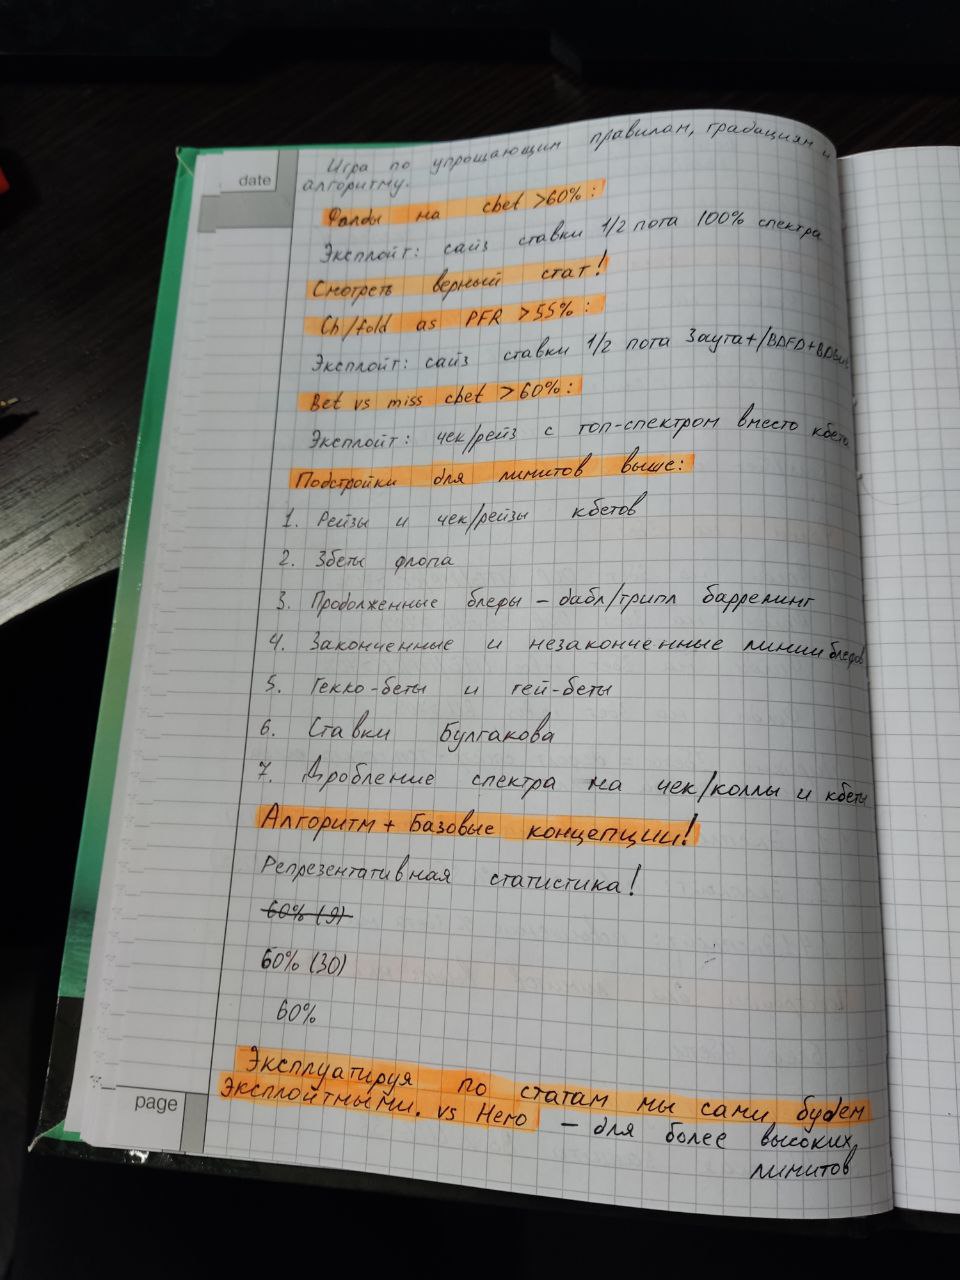 date
Игра по упрощающим правилам, градациям и
алгоритму.
Фолды на cbet >60%:
Эксплойт: сайз ставки 1/2 пота 100% спектра
Смотреть верный стат!
Ch/fold as PFR >55%:
Эксплойт: сайз ставки 1/2 пота 3аута+/BDFD+
Bet vs miss cbet >60%:
Эксплойт: чек/рейз с топ-спектром вместо кбета
Подстройки для лимитов выше:
1. Рейзы и чек/рейзы кбетов
2. 3беты флопа
3. Продолженные блефы – дабл/трипл баррелинг
4. Законченные и незаконченные линии блефов
5. Гекко-беты и гей-беты
6. Ставки Булгакова
7. Дробление спектра на чек/коллы и кбеты
Алгоритм + Базовые концепции!
Репрезентативная статистика!
60% (9)
60% (30)
60%
Эксплуатируя по статам мы сами будем
Эксплойтными. vs Hero – для более высоких
лимитов
page